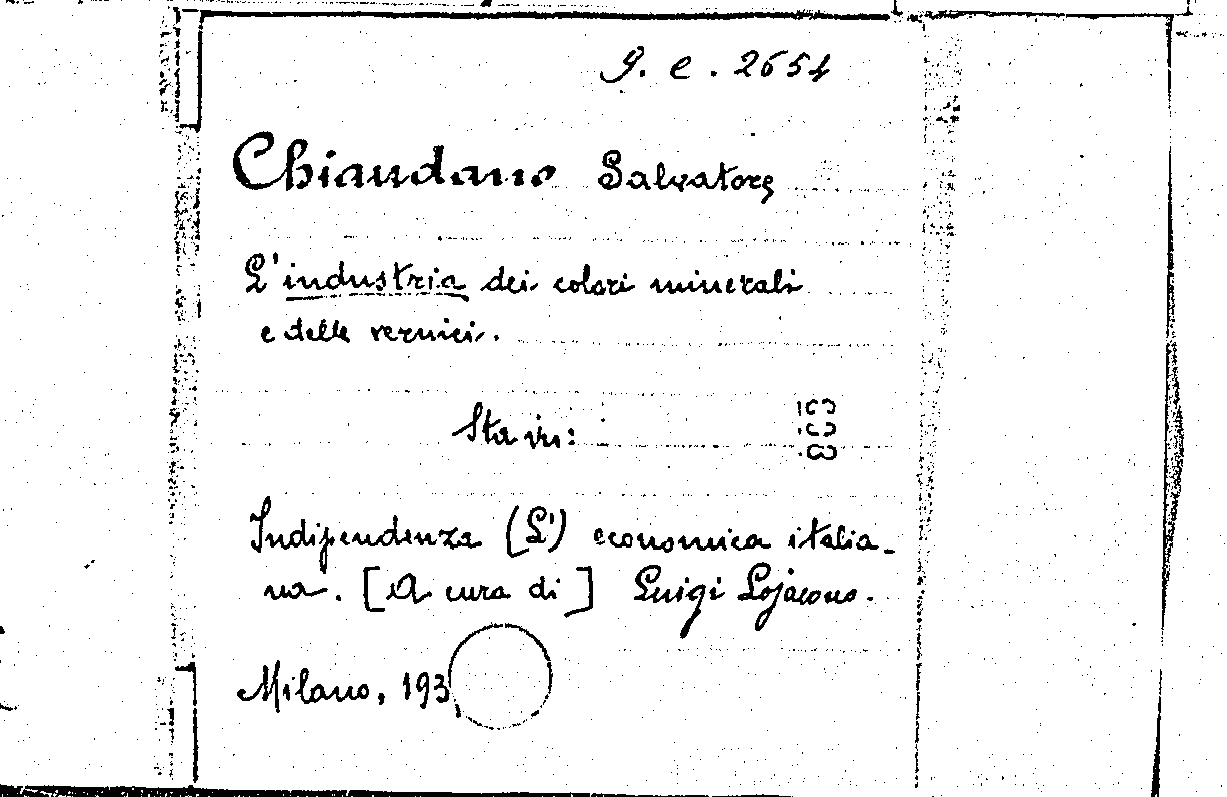 G. e. 2654
Chiaudano Salvatore
L'industria dei colori minerali
e delle vernici.
Sta in:
Indipendenza (L') economica italia-
na. [A cura di] Luigi Lojacono.
Milano, 193